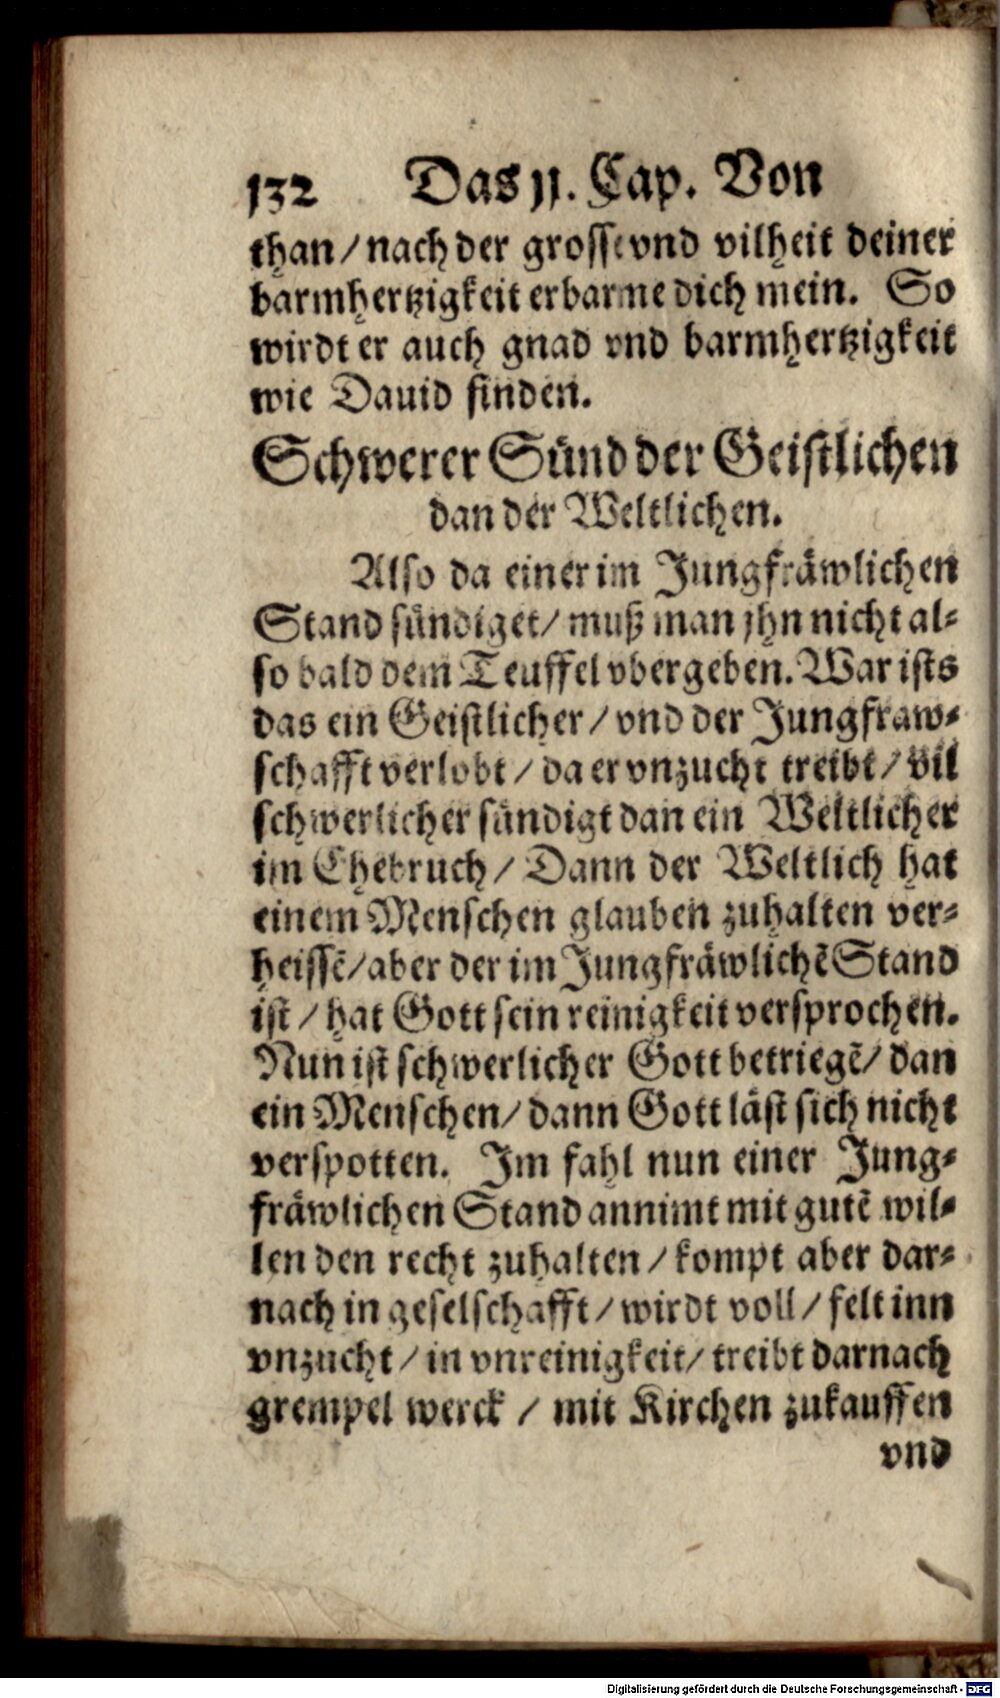 132 Das 11. Cap. Von
than / nach der grosse vnd vilheit deiner
barmhertzigkeit erbarme dich mein. So
wirdt er auch gnad vnd barmhertzigkeit
wie Dauid finden.
Schwerer Sünd der Geistlichen
dan der Weltlichen.
Also da einer im Jungfräwlichen
Stand sündiget / muß man jhn nicht al-
so bald dem Teuffel vbergeben. War ists
das ein Geistlicher / vnd der Jungfraw-
schafft verlobt / da er vnzucht treibt / vil
schwerlicher sündigt dan ein Weltlicher
im Ehebruch / Dann der Weltlich hat
einem Menschen glauben zuhalten ver-
heissẽ / aber der im Jungfräwlichẽ Stand
ist / hat Gott sein reinigkeit versprochen.
Nun ist schwerlicher Gott betriegẽ / dan
ein Menschen / dann Gott läst sich nicht
verspotten. Im fahl nun einer Jung-
fräwlichen Stand annimt mit gutẽ wil-
len den recht zuhalten / kompt aber dar-
nach in geselschafft / wirdt voll / felt inn
vnzucht / in vnreinigkeit / treibt darnach
grempel werck / mit Kirchen zukauffen
vnd
Digitalisierung gefördert durch die Deutsche Forschungsgemeinschaft - DFG